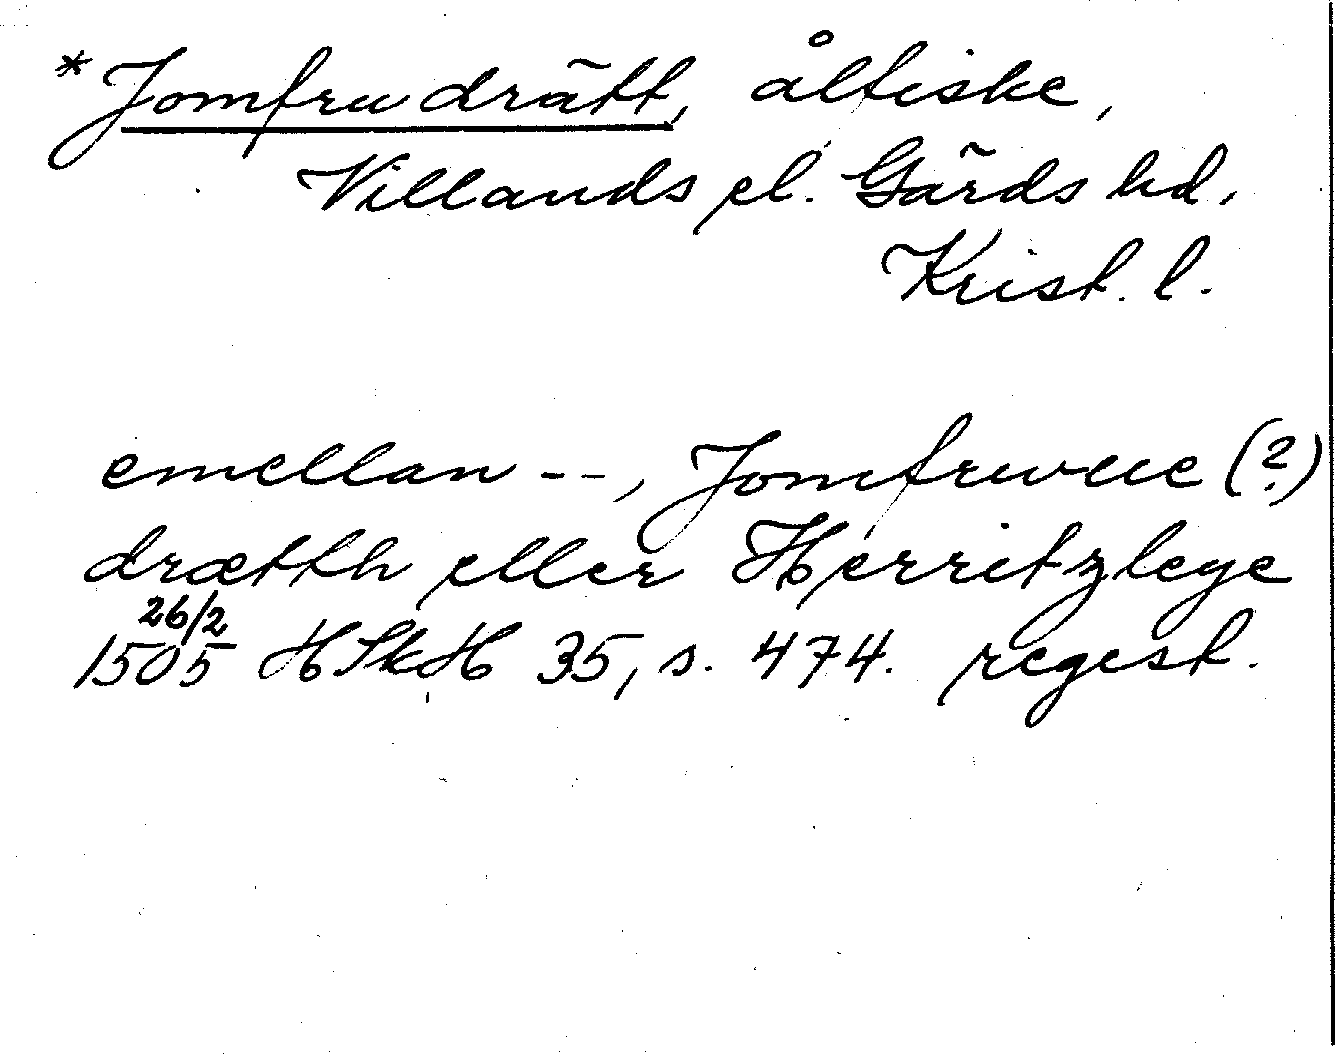 *Jomfrudrätt, ålfiske,
Villands el. Gärds hd,
Krist. l.
emellan --, Jomfruvee (?)
drætth eller Herritzleye
26/2
1505 HSkH 35, s. 474. regest.